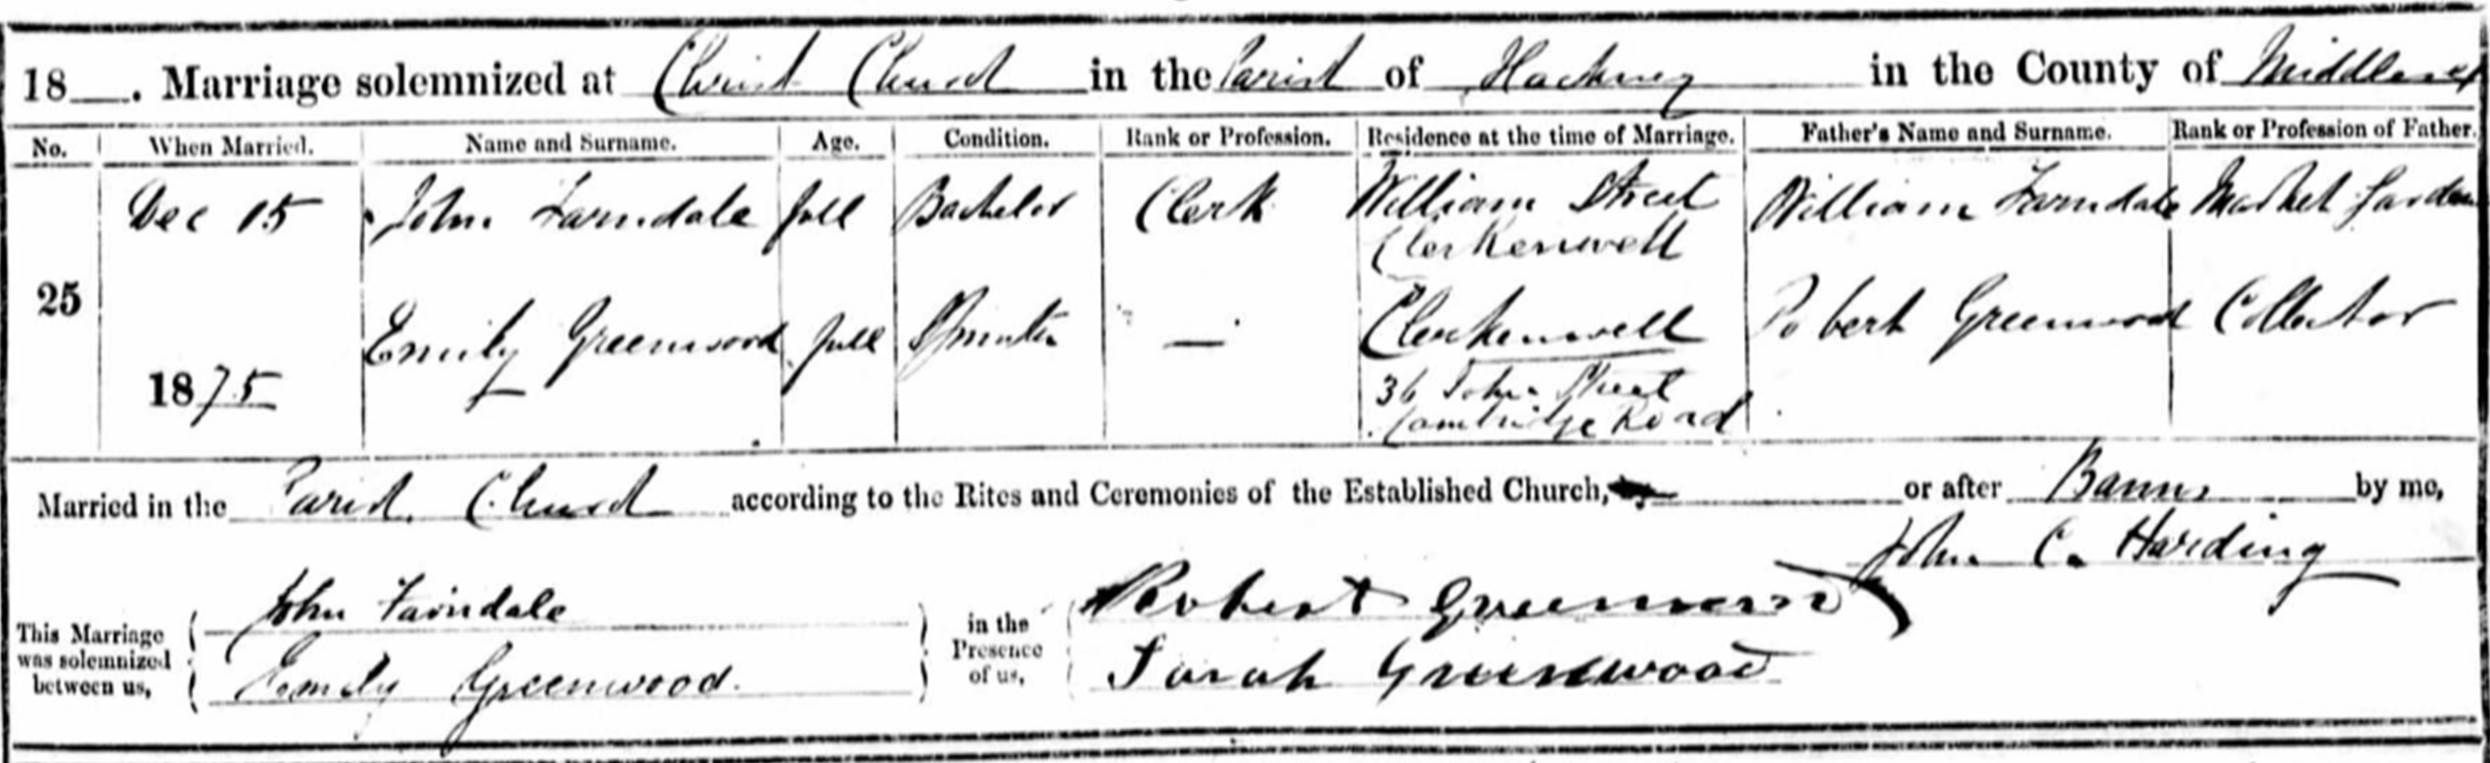 18__. Marriage solemnized at Christ Church in the Parish of Hackney in the County of Middlesex
No. When Married. Name and Surname. Age. Condition. Rank or Profession. Residence at the time of Marriage. Father's Name and Surname. Rank or Profession of Father.
Dec 15 John Farndale full Bachelor Clerk William Street William Farndale Market Garden
Clerkenwell
25 Emily Greenwood full Spinster — Clerkenwell Robert Greenwood Collector
1875 36 John Street
Cambridge Road
Married in the Parish Church according to the Rites and Ceremonies of the Established Church, or after Banns by me,
John C. Harding
This Marriage was solemnized between us, John Farndale in the Presence of us, Robert Greenwood
Emily Greenwood Sarah Greenwood